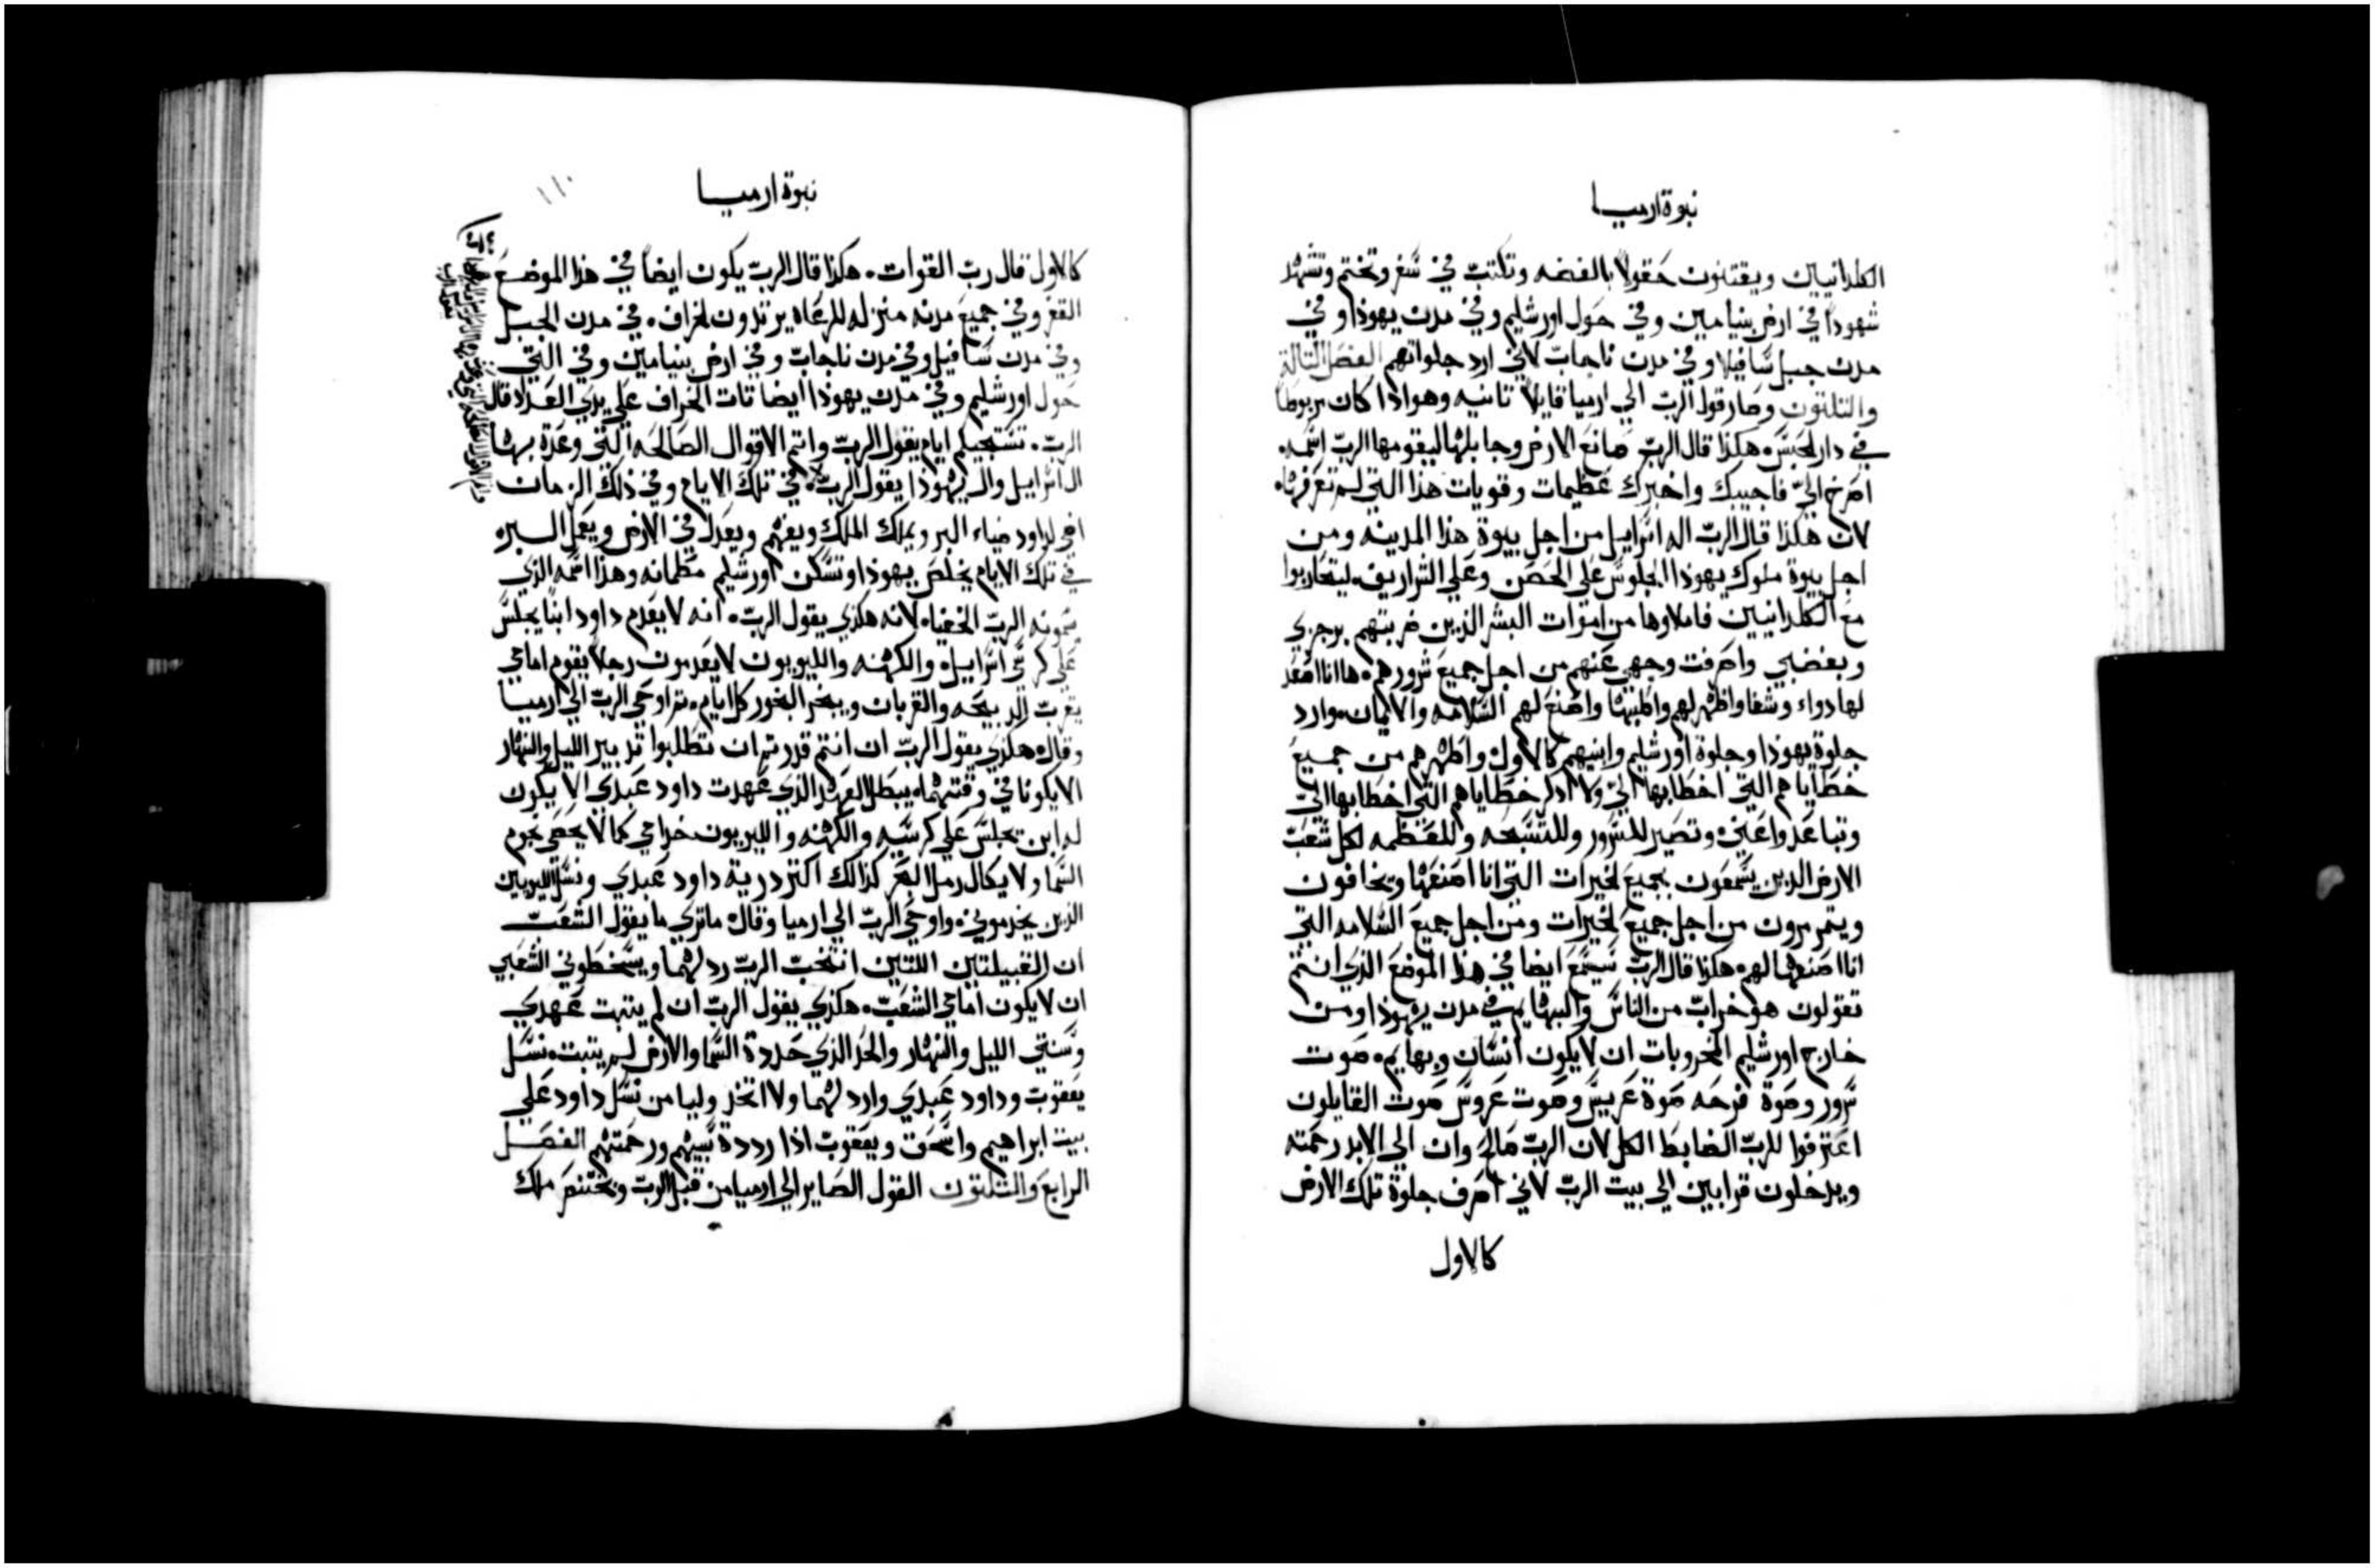 نبوة ارميا
الكلدانيين ويقتنون حقولاً بالفضه وتكتب في سفر وتختم وتشهد
شهوداً في ارض بنيامين وفي حول اورشليم وفي مدن يهوذا وفي
مدن جبل سافيلا وفي مدن ناجاب لاني ارد جلواتهم الفصل التالت
والتلتون وصار قول الرب الي ارميا قايلاً تانيه وهو اذا كان مربوطا
في دار الحبس. هكذا قال الرب صانع الارض وجابلها ليقومها الرب اسمه.
اصرخ الي فاجيبك واخبرك عظيمات وقويات هذا التي لم تعرفها.
لان هكذا قال الرب اله اسراييل من اجل بيوة هذا المدينه ومن
اجل بيوة ملوك يهوذا الجلوس علي الحصن وعلي الشراريف. ليتحاربوا
مع الكلدانيين فاملاوها من اموات البشر الذين ضربتهم برجزي
وبغضبي واصرفت وجهي عنهم من اجل جميع شرورهم. ها انا اصعد
لها دواء وشفا واظهر لهم واطببها واصنع لهم السلامه والايمان. وارد
جلوة يهوذا وجلوة اورشليم وابنيهم كالاول واطهرهم من جميع
خطاياهم التي اخطا بها الي ولا ادكر خطاياهم التي اخطا بها الي
وتباعدوا عني. وتصير للسرور وللتسبحه وللعظمه لكل شعب
الارض الدين يسمعون بجميع الخيرات التي انا اصنعها ويخافون
ويتمرمرون من اجل جميع الخيرات ومن اجل جميع السلامه التي
انا اصنعها لهم. هكذا قال الرب سيسمع ايضا في هذا الموضع الذي انتم
تقولون هو خراب من الناس والبهايم في مدن يهوذا ومن
خارج اورشليم المخروبات ان لا يكون انسان وبهايم. صوت
سرور وصوة فرحه صوة عريس وصوت عروس صوت القايلون
اعترفوا للرب الضابط الكل لان الرب صالح وان الي الابد رحمته
ويدخلون قرابين الي بيت الرب لاني اصرف جلوة تلك الارض
كالاول
نبوة ارميا
١١٠
كالاول قال رب القوات. هكذا قال الرب يكون ايضاً في هذا الموضع
القفر وفي جميع مدنه منزله للرعاه يرتدون الخراف. في مدن الجبل
وفي مدن سافيل وفي مدن ناجاب وفي ارض بنيامين وفي التي
حول اورشليم وفي مدن يهوذا ايضا تات الخراف علي يدي العداد قال
الرب. ستجي ايام يقول الرب واتم الاقوال الصالحه التي وعدة بها
ال اسراييل وال يهوذا يقول الرب. في تلك الايام وفي ذلك الزمان
اضي لداود ضياء البر ويملك الملك ويفهم ويعدل في الارض ويعمل البره
في تلك الايام يخلص يهوذا وتسكن اورشليم مطمانه وهذا اسمه الذي
يسمونه الرب الخفيا. لانه هكذي يقول الرب. انه لا يعدم داود ابنا يجلس
علي كرسي اسراييل. والكهنه والليويون لا يعدمون رجلا يقوم امامي
يقرب الدبيحه والقربان ويبخر البخور كل ايام. تم اوحي الرب الي ارميا
وقال. هكذي يقول الرب ان انتم قدرتم ان تطلبوا تدبير الليل والنهار
الا يكونا في وقتهما. يبطل العهد الذي عهدت داود عبدي الا يكون
له ابن يجلس علي كرسيه والكهنه والليويون خدامي كما لا يحصي نجوم
السما ولا يكال رمل البحر كذالك اكتر درية داود عبدي ونسل الليويين
الذين يخدموني. واوحي الرب الي ارميا وقال. ما تري ما يقول الشعب
ان القبيلتين اللتين انتخب الرب ردلهما ويسخطوني الشعبي
ان لا يكون امامي الشعب. هكذي يقول الرب ان لم يتبت عهدي
وسنتي الليل والنهار والحد الذي حددة السما والارض لم يتبت. نسل
يعقوب وداود عبدي واردلهما ولا اتخذ وليا من نسل داود علي
بيت ابراهيم واسحق ويعقوب اذا رددة سبيهم ورحمتهم الفصل
الرابع والتلتون القول الصاير الي ارميا من قبل الرب وبختنصر ملك